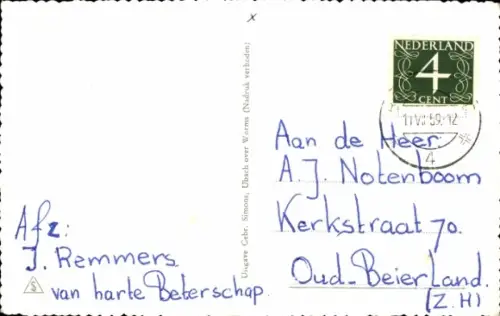 Afz:
J. Remmers
van harte Beterschap.
Uitgave Gebr. Simons, Ubach over Worms (Nadruk verboden)
NEDERLAND
4
CENT
59.12
4
Aan de Heer
A.J. Notenboom
Kerkstraat 70.
Oud-Beierland.
(Z.H)